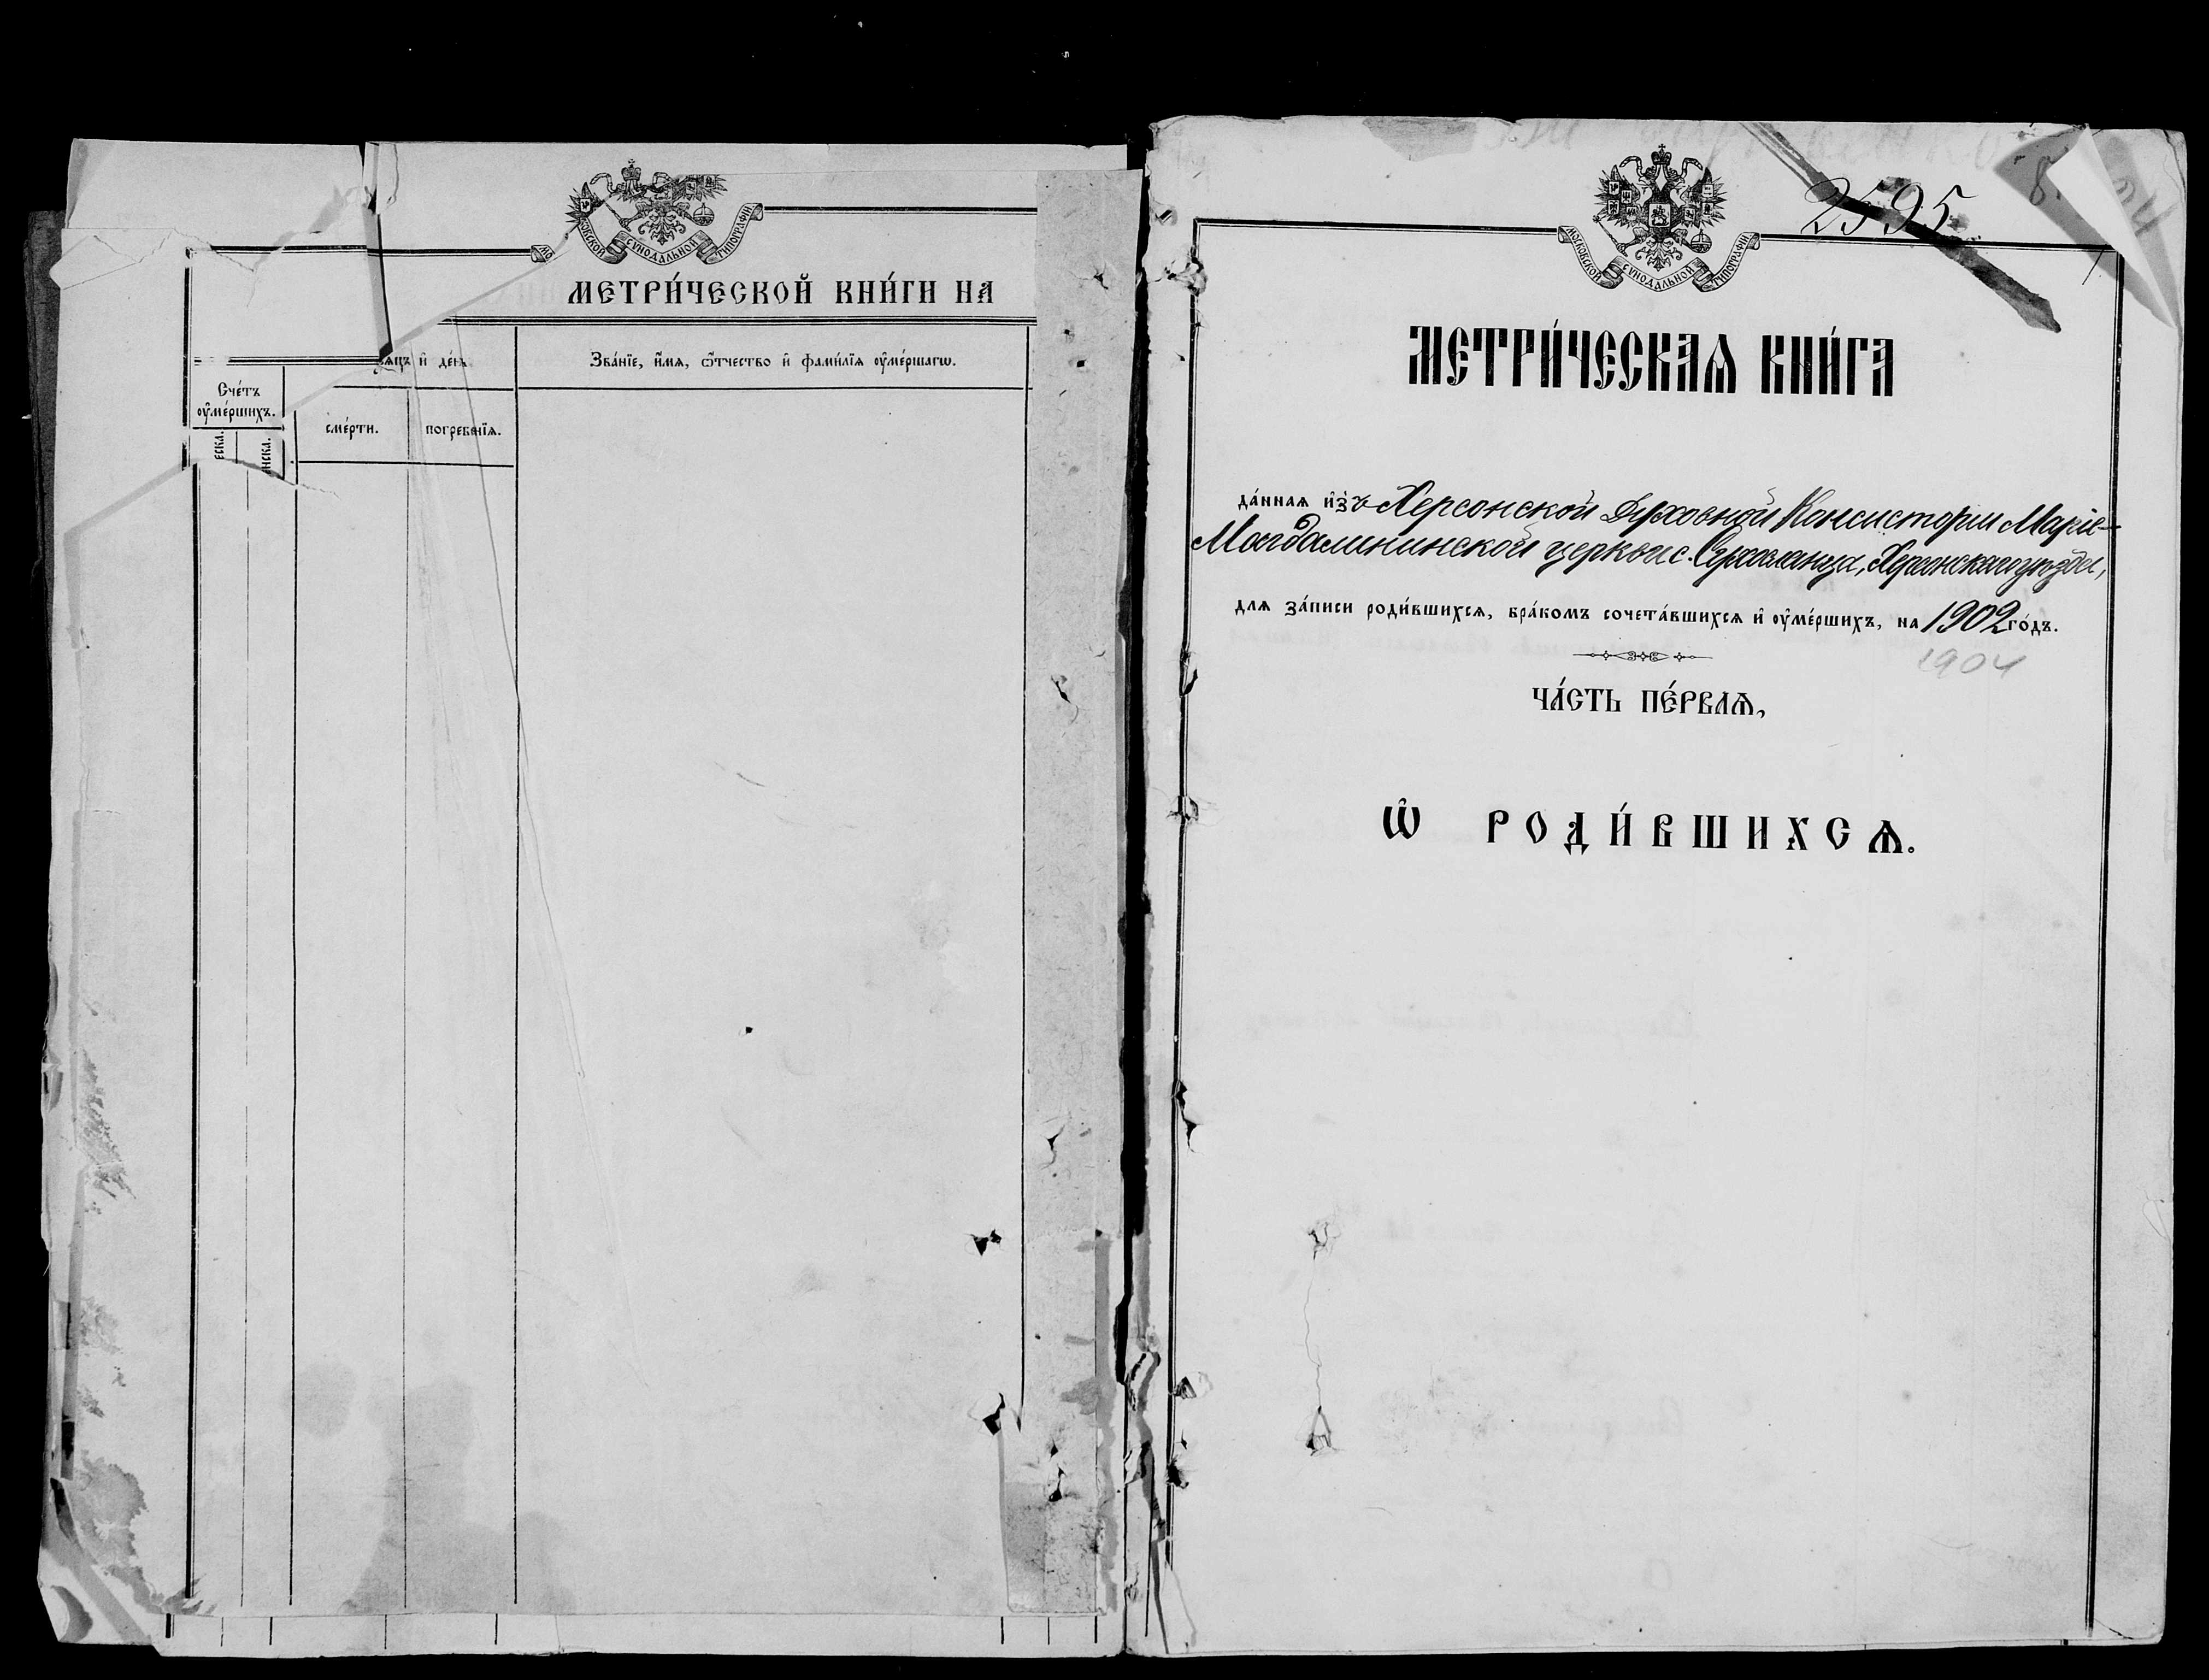 МОСКОВСКОЙ СѴНОДАЛЬНОЙ ТИПОГРАФІИ
МЕТРИ́ЧЕСКОЙ КНИ́ГИ НА
и҆ де́нь
Зва́нїе, и҆́мѧ, ѻ҆́тчество и҆ фами́лїѧ ᲂу҆ме́ршагѡ.
Сче́тъ
ᲂу҆ме́ршихъ.
сме́рти.
погребе́нїѧ.
2595
МОСКОВСКОЙ СѴНОДАЛЬНОЙ ТИПОГРАФІИ
МЕТРИ́ЧЕСКАѦ КНИ́ГА
да́ннаѧ и҆зъ Херсонской Духовной Консисторіи Маріе-
Магдалининской церкви с. , Херсонскаго уѣзда,
для за́писи роди́вшихсѧ, бра́комъ сочета́вшихсѧ и҆ ᲂу҆ме́ршихъ, на 1902 го́дъ.
1904
ЧА́СТЬ ПЕ́РВАѦ,
Ѽ РОДИ́ВШИХСѦ.